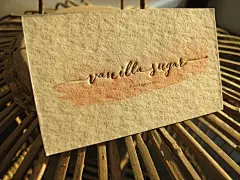 vanilla sugar